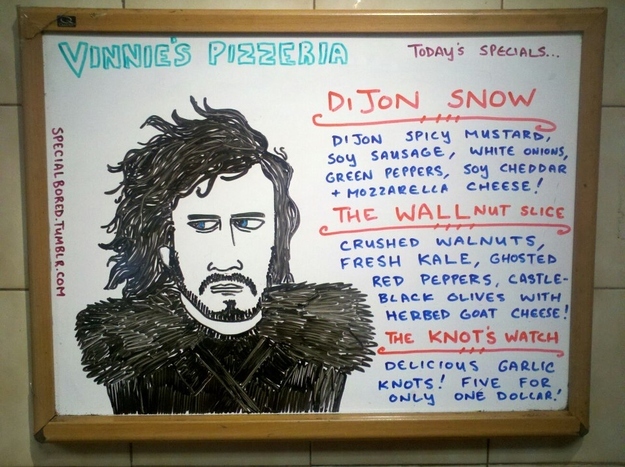 VINNIE'S PIZZERIA
TODAY'S SPECIALS...
DIJON SNOW
DIJON SPICY MUSTARD,
SOY SAUSAGE, WHITE ONIONS,
GREEN PEPPERS, SOY CHEDDAR
+ MOZZARELLA CHEESE!
THE WALLNUT SLICE
CRUSHED WALNUTS,
FRESH KALE, GHOSTED
RED PEPPERS, CASTLE-
BLACK OLIVES WITH
HERBED GOAT CHEESE!
THE KNOT'S WATCH
DELICIOUS GARLIC
KNOTS! FIVE FOR
ONLY ONE DOLLAR!
SPECIALBORED.TUMBLR.COM